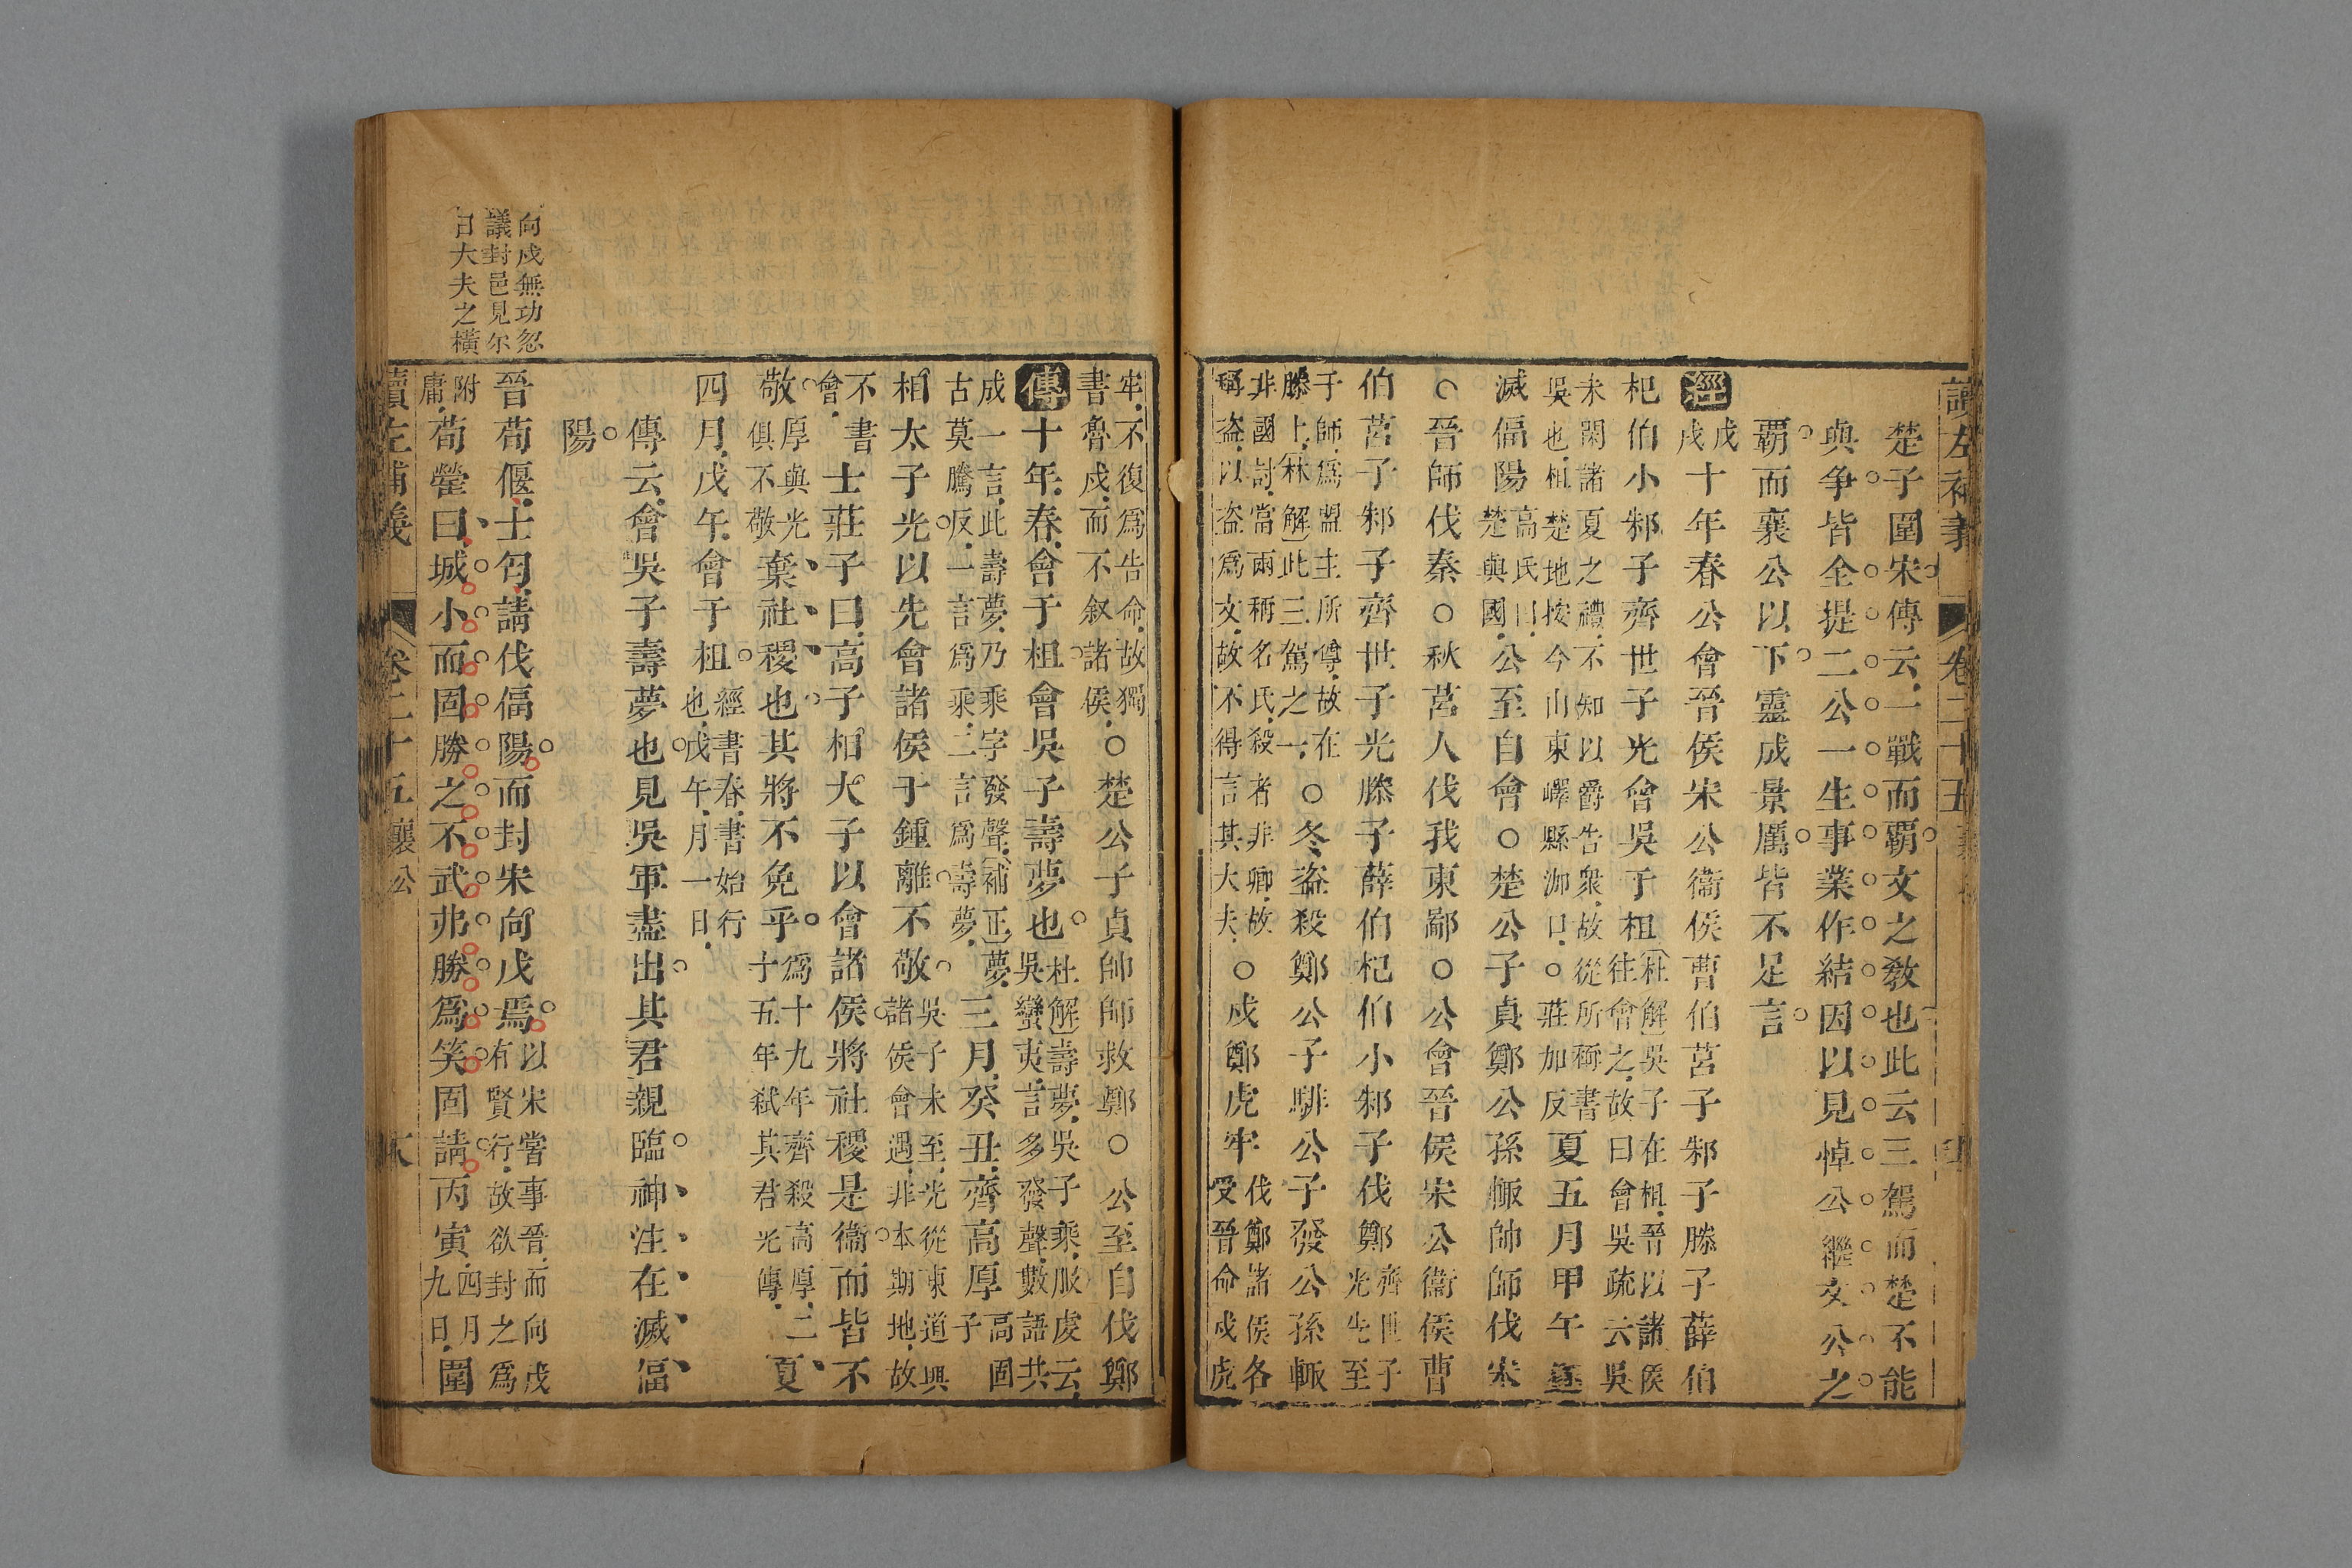 讀左補義 卷二十五
楚子圍宋傳云一戰而霸文之敎也此云三駕而楚不能
與爭皆全提二公一生事業作結因以見悼公繼文公之
霸而襄公以下靈成景厲皆不足言
經 戊戌 十年春公會晉侯宋公衞侯曹伯莒子邾子滕子薛伯
杞伯小邾子齊世子光會吳于柤 杜解吳子在柤晉以諸侯往會之故曰會吳疏云吳
未閑諸夏之禮不知以爵告衆故從所稱書吳也柤楚地按今山東嶧縣泇口○莊加反 夏五月甲午遂
滅偪陽 高氏曰楚與國 公至自會○楚公子貞鄭公孫輒帥師伐宋
○晉師伐秦○秋莒人伐我東鄙○公會晉侯宋公衞侯曹
伯莒子邾子齊世子光滕子薛伯杞伯小邾子伐鄭 齊世子光先至
子師爲盟主所尊故在滕上林解此三駕之一 ○冬盜殺鄭公子騑公子發公孫輒
非國討當兩稱名氏殺者非卿故稱盜以盜爲文故不得言其大夫 ○戍鄭虎牢 伐鄭諸侯各受晉命戍虎
牢不復爲告命故獨書魯戍而不叙諸侯 ○楚公子貞帥師救鄭○公至自伐鄭
傳 十年春會于柤會吳子壽夢也 杜解壽夢吳子乘服虔云吳蠻夷言多發聲數語共
成一言此壽夢乃乘字發聲補正夢古莫騰反一言爲乘二言爲壽夢 三月癸丑齊高厚 高固子
相太子光以先會諸侯于鍾離不敬 吳子未至光從東道與諸侯會遇非本期地故
不書會 士莊子曰高子相大子以會諸侯將社稷是衞而皆不
敬 厚與光俱不敬 棄社稷也其將不免乎 爲十九年齊殺高厚二十五年弒其君光傳 夏
四月戊午會于柤 經書春書始行也戊午月一日
傳云會吳子壽夢也見吳軍盡出其君親臨神注在滅偪
陽
向戌無功忽
議封邑見尔
日大夫之橫
晉荀偃士匄請伐偪陽而封宋向戌焉 以宋嘗事晉而向戌有賢行故欲封之爲
附庸 荀罃曰城小而固勝之不武弗勝爲笑固請丙寅 四月九日 圍
讀左補義 卷二十五 襄公